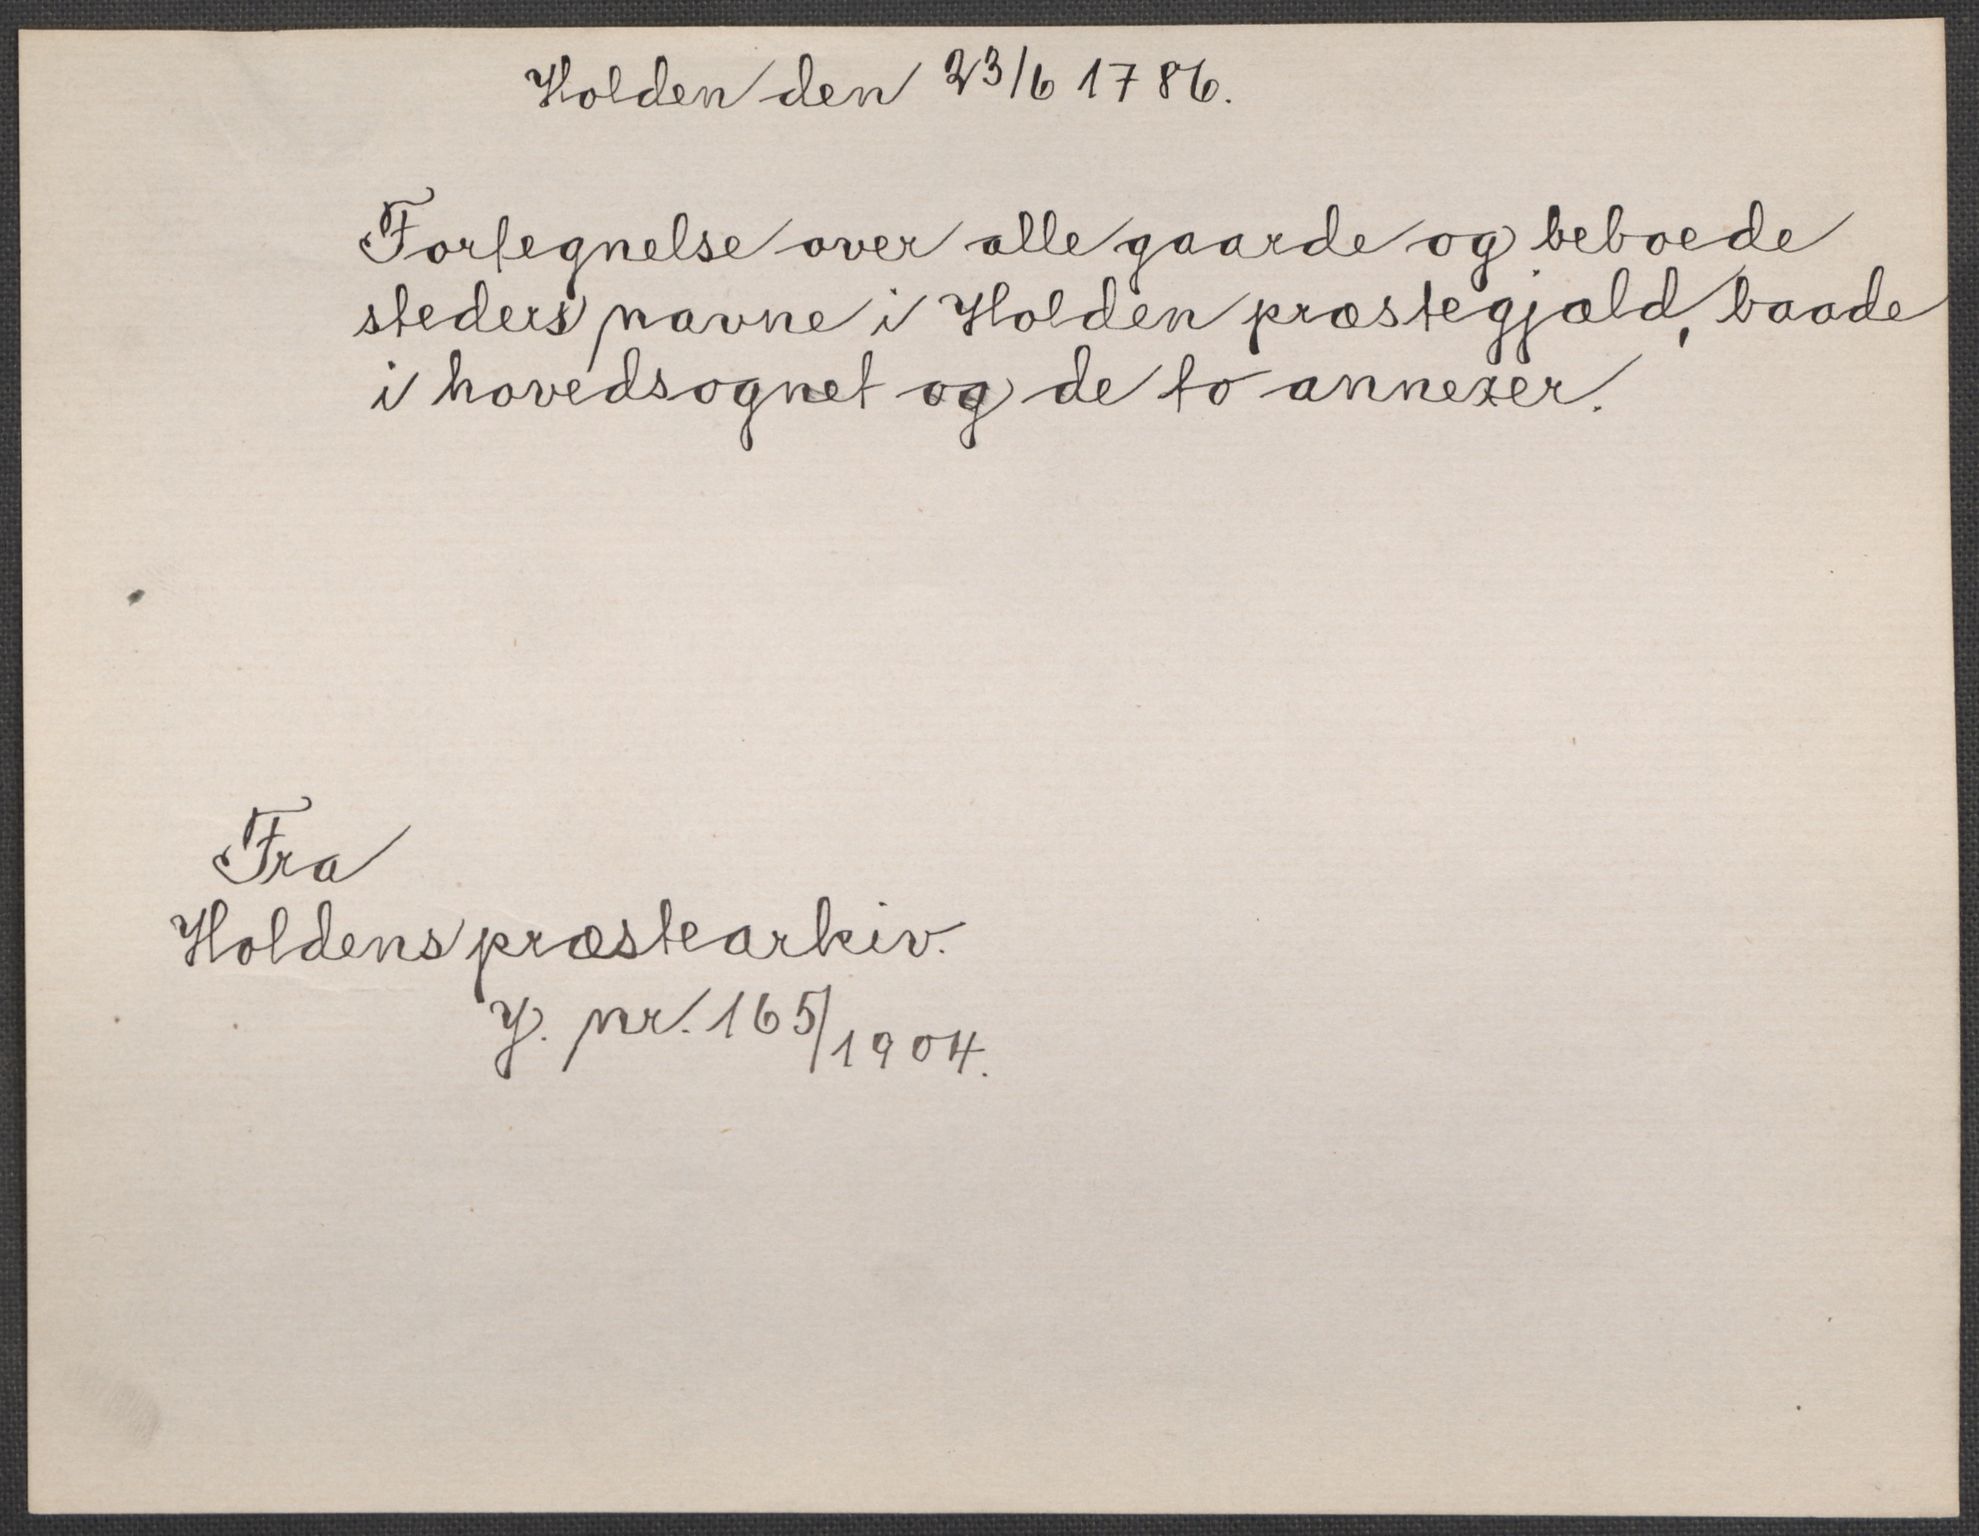 Holden den 23/6 1786.
Fortegnelse over alle gaarde og beboede
steders navne i Holden præstegjæld, baade
i hovedsognet og de to annexer.
Fra
Holdens præstearkiv.
J. nr. 165/1904.